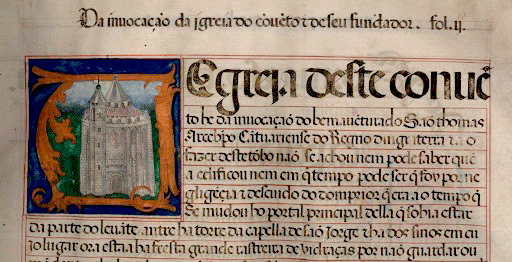 Da inuocação da igreia do cõuẽto ⁊ de seu fundador. fol. ij.
A Egreja deste conuẽ
to he da inuocação do bemauẽturado São thomas
Arcebp̃o Cãtuariense do Regno dinglaterra ⁊ ao
fazer deste tõbo naõ se achou nem pode saber quẽ
a edificou nem em q̃ tempo pode ser q̃ foy por ne
gligẽçia ⁊ descuido do tom prior q̃ era ao tempo q̃
Se mudou ho portal principal della q̃ sohia estar
da parte do leuãte antre ha torre da capella de são Jorge ⁊ ha dos sinos em cu
jo lugar ora esta ha fresta grande rastreira de vidraças por naõ guardar ou